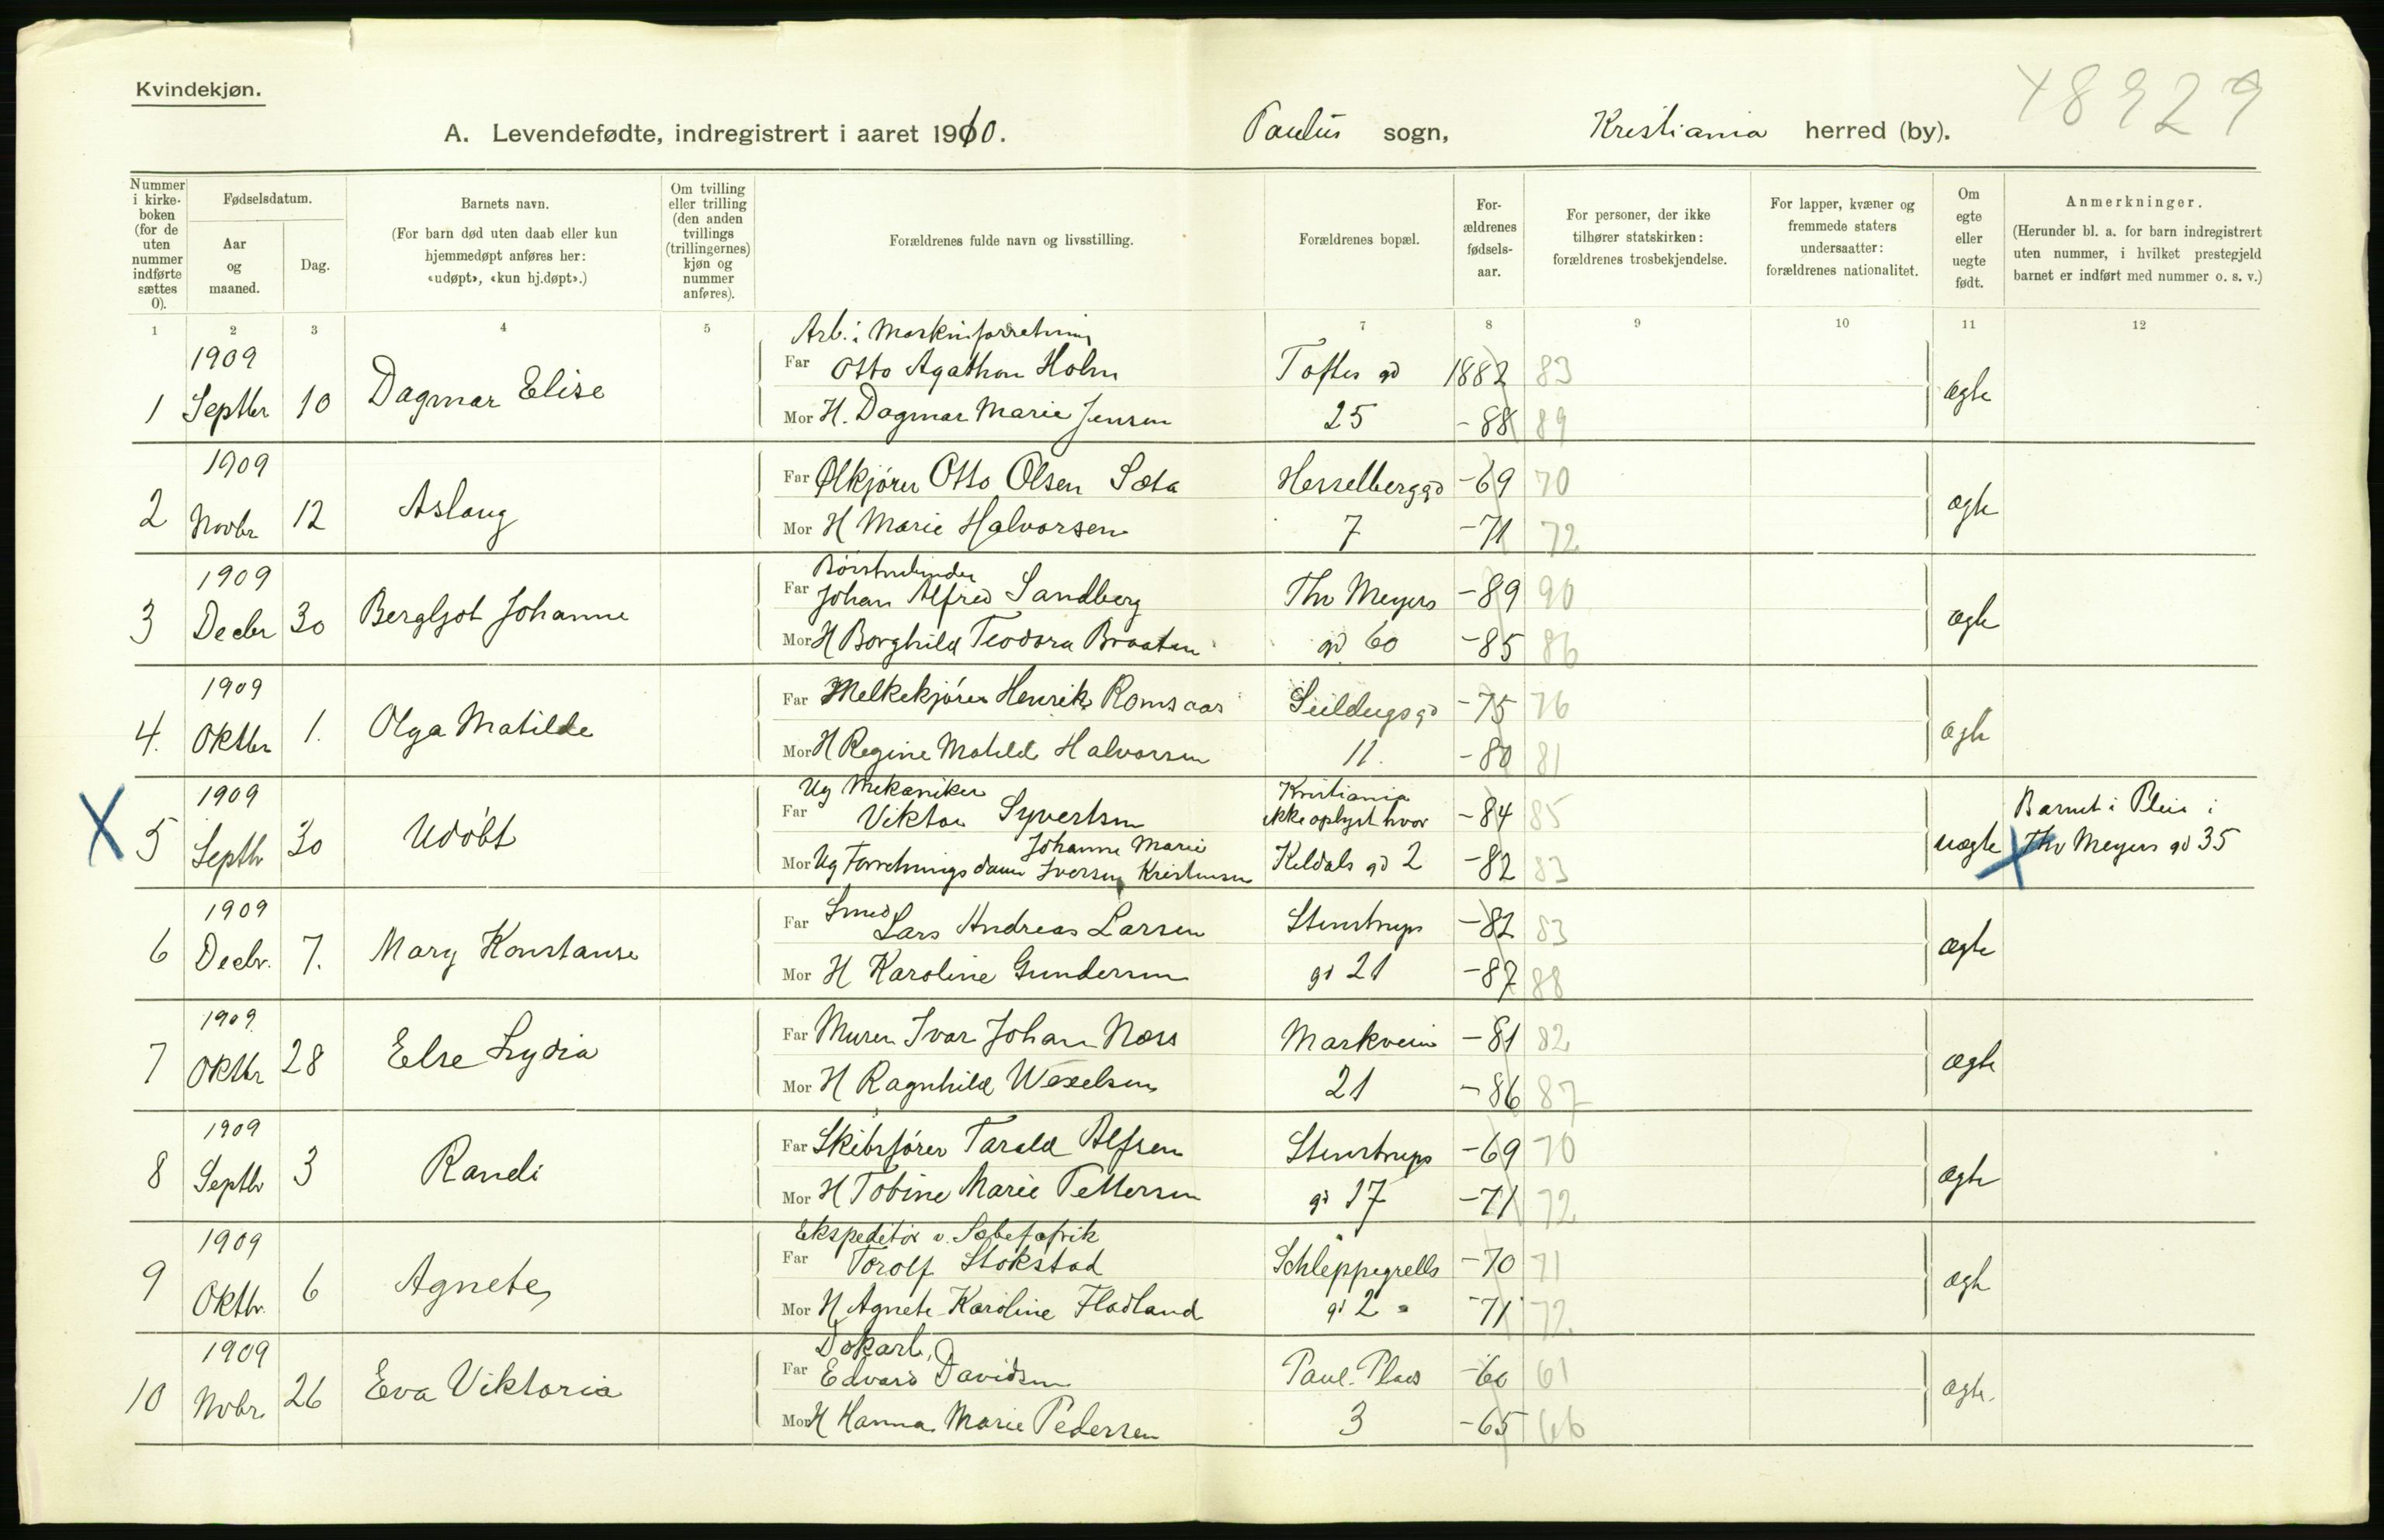 Kvindekjøn.
48929
A. Levendefødte, indregistrert i aaret 1910. Paulus sogn, Kristiania herred (by).
Nummer i kirke-boken (for de uten nummer indførte sættes 0).
Fødselsdatum.
Aar og maaned.
Dag.
Barnets navn.
(For barn død uten daab eller kun hjemmedøpt anføres her: «udøpt», «kun hj.døpt».)
Om tvilling eller trilling (den anden tvillings (trillingernes) kjøn og nummer anføres).
Forældrenes fulde navn og livsstilling.
Forældrenes bopæl.
For-ældrenes fødsels-aar.
For personer, der ikke tilhører statskirken: forældrenes trosbekjendelse.
For lapper, kvæner og fremmede staters undersaatter: forældrenes nationalitet.
Om egte eller uegte født.
Anmerkninger.
(Herunder bl. a. for barn indregistrert uten nummer, i hvilket prestegjeld barnet er indført med nummer o. s. v.)
1 2 3 4 5 7 8 9 10 11 12
Arb. i Maskinforretning
1909 Far Otto Agathon Holm Toftes gd 1882 83
1 Septbr 10 Dagmar Elise ægte
Mor H. Dagmar Marie Jensen 25 -88 89
1909 Far Ølkjører Otto Olsen Sæta Hesselberggd -69 70
2 Novbr 12 Aslaug ægte
Mor H Marie Halvorsen 7 -71 72
Børstenbinder
1909 Far Johan Alfred Sandberg Thv Meyers -89 90
3 Decbr 30 Bergljot Johanne ægte
Mor H Borghild Teodora Braaten gd 60 -85 86
1909 Far Melkekjører Henrik Romsaas Seildugsgd -75 76
4. Oktbr 1. Olga Matilde ægte
Mor H Regine Matild Halvorsen 11. -80 81
Ug Mekaniker Kristiania
1909 Far Viktor Syvertsen ikke oplyst hvor -84 85 Barnet i Pleie i
X 5 Septbr 30 Udøbt uægte X Thv Meyers gd 35
Johanne Marie
Mor Ug Forretningsdame Iversen Kristensen Keldals gd 2 -82 83
Smed
1909 Far Lars Andreas Larsen Stenstrups -82 83
6 Decbr. 7. Mary Konstanse ægte
Mor H Karoline Gundersen gd 21 -87 88
1909 Far Murer Ivar Johan Næss Markveien -81 82
7 Oktbr 28 Else Lydia ægte
Mor H Ragnhild Wexelsen 21 -86 87
1909 Far Skibsfører Tarald Alfsen Stenstrups -69 70
8 Septbr 3 Randi ægte
Mor H Tobine Marie Pettersen gd 17 -71 72
Ekspeditør v. Sæbefabrik
1909 Far Torolf Stokstad Schleppegrells -70 71
9 Oktbr. 6 Agnete ægte
Mor H Agnete Karoline Fladland gd 2 -71 72
Dokarb.
1909 Far Edvard Davidsen Paul. Plads -60 61
10 Nvbr. 26 Eva Viktoria ægte.
Mor H Hanna Marie Pedersen 3 -65 66